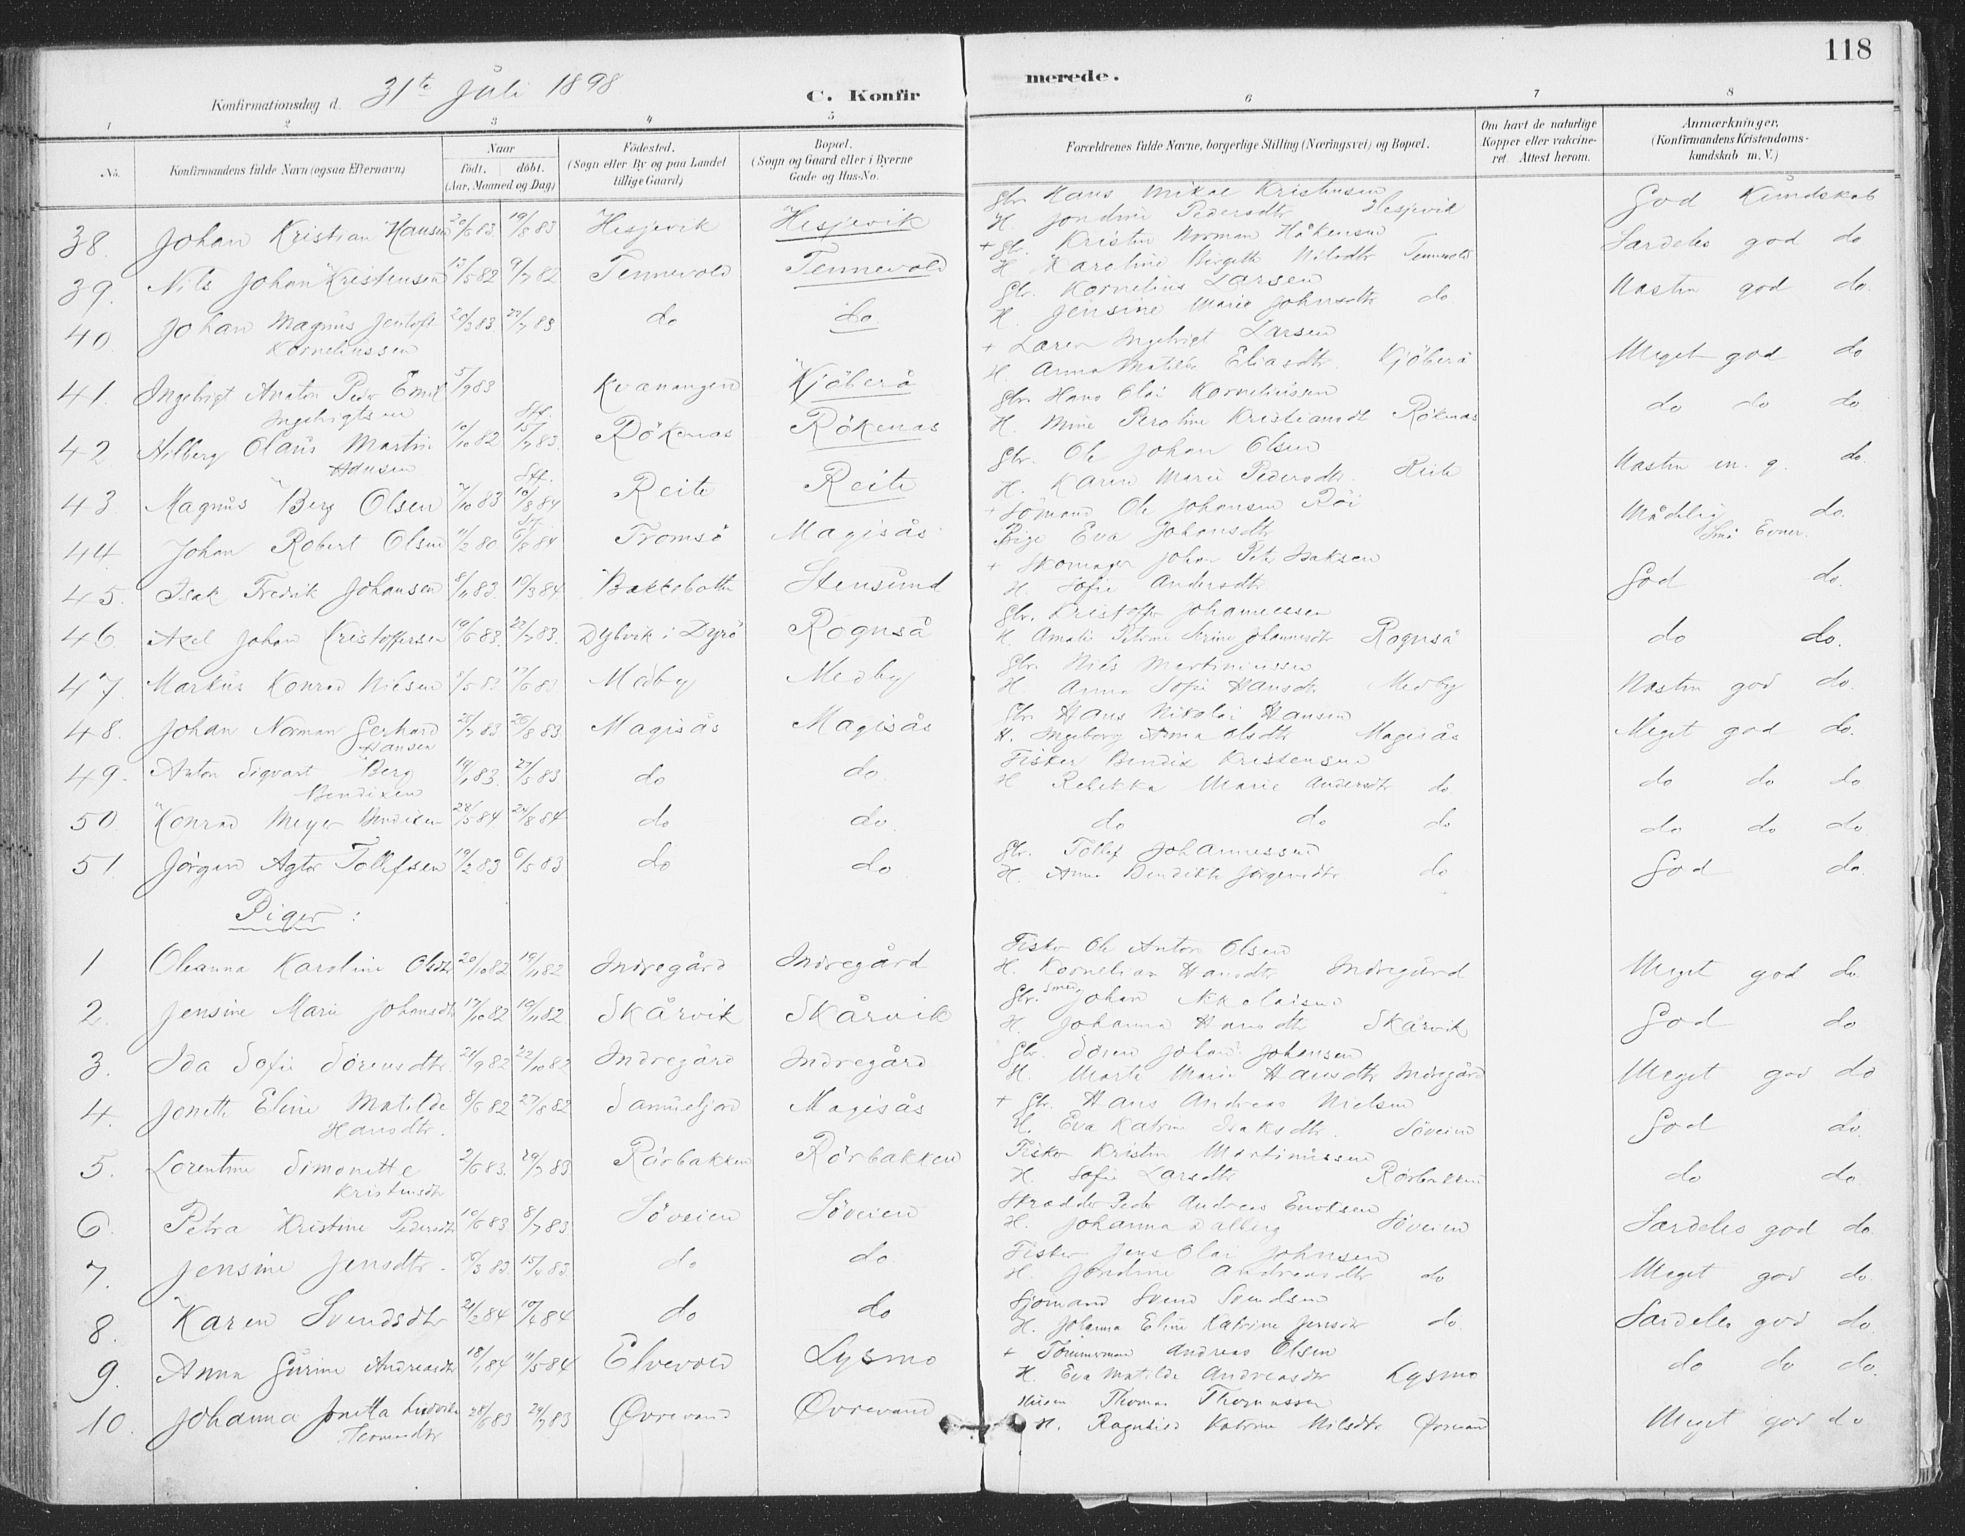 118
Konfirmationsdag d. 31te Juli 1898
C. Konfir
merede.
1 2 3 4 5 6 7 8
No.
Konfirmandens fulde Navn (ogsaa Efternavn)
Naar
født. døbt.
(Aar, Maaned og Dag)
Fødested.
(Sogn eller By og paa Landet
tillige Gaard)
Bopæl.
(Sogn og Gaard eller i Byerne
Gade og Hus-No.
Forældrenes fulde Navne, borgerlige Stilling (Næringsvei) og Bopæl.
Om havt de naturlige
Kopper eller vakcine-
ret. Attest herom.
Anmærkninger.
(Konfirmandens Kristendoms-
kundskab m. V.)
Gbr. Hans Mikal Kristensen
38. Johan Kristian Hansen 20/6 83 19/8 83 Hesjevik Hesjevik H. Jondine Pedersdtr Hesjevik God Kundskab
+ Gbr. Kristen Norman Håkensen
39. Nils Johan Kristensen 13/5 82 9/7 82 Tennevold Tennevold H. Karoline Birgitte Nilsdtr Tennevold Særdeles god do
Gbr. Kornelius Larsen
40. Johan Magnus Jentoft 20/3 83 22/7 83 do do H. Jensine Marie Johnsdtr do Næsten god do.
Korneliussen
+ Ingebrigt Larsen
41. Ingebrigt Anton Peder Emil 5/9 83 Kvænangen Kjöberå H. Anna Matilde Eliasdtr Kjöberå Meget god do
Ingebrigtsen
Gbr. Hans Olai Korneliussen
42 Hilberg Olaus Martin 10/10 82 15/7 83. Rökenæs Rökenæs H. Mine Peroline Kristiansdt Rökenæs do do do
Hansen
Gbr. Ole Johan Olsen
43. Magnus Berg Olsen 7/10 83 10/8 84 Reite Reite H. Karen Marie Pedersdtr Reite Næsten m. g. do.
+ Sömand Ole Johansen Röi
44. Johan Robert Olsen 11/2 80 6/8 84 Tromsö Magisås Pige Eva Johansdtr Mådelig do.
Små Evner.
+ Skomager Johan Petr Isaksen
45. Isak Fredrik Johansen 8/11 83. 19/3 84 Bakkebotten Stensund H. Sofie Andersdtr. God do.
Gbr. Kristoffer Johannessen
46. Axel Johan Kristoffersen 19/6 83. 22/7 83. Dybvik i Dyrö Rognså H. Amalie Petrine Serine Johannesdtr Rognså do do.
Gbr. Nils Martinussen
47. Markus Konrad Nilsen 3/5 83 17/6 83. Medby Medby H. Anna Sofie Hansdtr Medby Næsten god do.
Gbr. Hans Nikolai Hansen
48. Johan Norman Gerhard 21/7 83 26/8 83 Magisås Magisås H. Ingeborg Anna Olsdtr Magisås Meget god do.
Hansen
Fisker Bendix Kristensen
49. Anton Sigvart Berg 14/1 83. 27/5 83 do do. H Rebekka Marie Andersdtr do do do do
Bendixen
50. Konrad Meyer Bendixen 28/5 84 24/8 84 do do. do do do do do do
Gbr. Tollef Johannessen
51. Jörgen Agtor Tollefsen 19/2 83 6/5 83 do do. H. Anna Bendikte Jörgensdtr do God do.
Piger :
Fisker Ole Anton Olsen
1 Oleanna Karoline Olsdtr 20/10 82 19/11 82 Indregård Indregård H. Kornelia Hansdtr Indregård Meget god do.
Gbr. Smed Johan Nikolaisen
2. Jensine Marie Johansdtr 17/10 82 19/11 82. Skårvik Skårvik H. Johanna Hansdtr Skårvik God do
Gbr. Sören Johan Johansen
3. Ida Sofie Sörensdtr. 21/9 82 22/10 82 Indregård Indregård H. Marte Marie Hansdtr Indregård Meget god do
+ Gbr. Hans Andreas Nielsen
4. Jonette Eline Matilde 8/6 82 27/8 82 Samuelsjord Magisås H. Eva Katrine Isaksdtr. Söveien God do.
Hansdtr.
Fisker Kristen Martinussen
5. Lorentine Simonette 2/6 83. 29/7 83 Rörbakken Rörbakken H. Sofie Larsdtr Rörbakken do do.
Kristensdtr
Skrædder Peder Andreas Enoksen
6. Petra Kristine Pedersdtr 10/6 83 8/7 83 Söveien Söveien H. Johanna Dalberg Söveien Særdeles god do.
Fisker Jens Olai Johnsen
7. Jensine Jensdtr. 19/3 83. 15/4 83. do do. H. Jondine Andreasdtr do Meget god do.
Sjömand Svend Svendsen
8. Karen Svendsdtr 21/2 84 10/4 84 do do H. Johanna Eline Katrine Jensdtr do. Særdeles god do.
+ Tömmermand Andreas Olsen
9. Anna Gurine Andreasdtr 18/1 84 11/5 84 Elvevold Lysmo H. Eva Matilde Andreasdtr Lysmo do do do.
Thomas Thomassen
10. Johanna Jonetta Ludvikke 28/6 83 29/7 83 Øvrevand Øvrevand H. Ragnhild Katrine Nilsdtr Øvrevand Meget god do
Thomasdtr